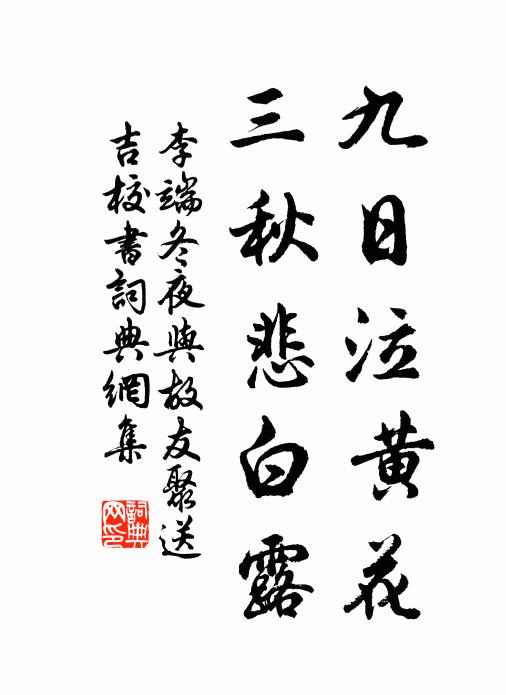 九日泣黄花
三秋悲白露
李端冬夜與故友聚送
吉校書詞典網集
詞典
网印